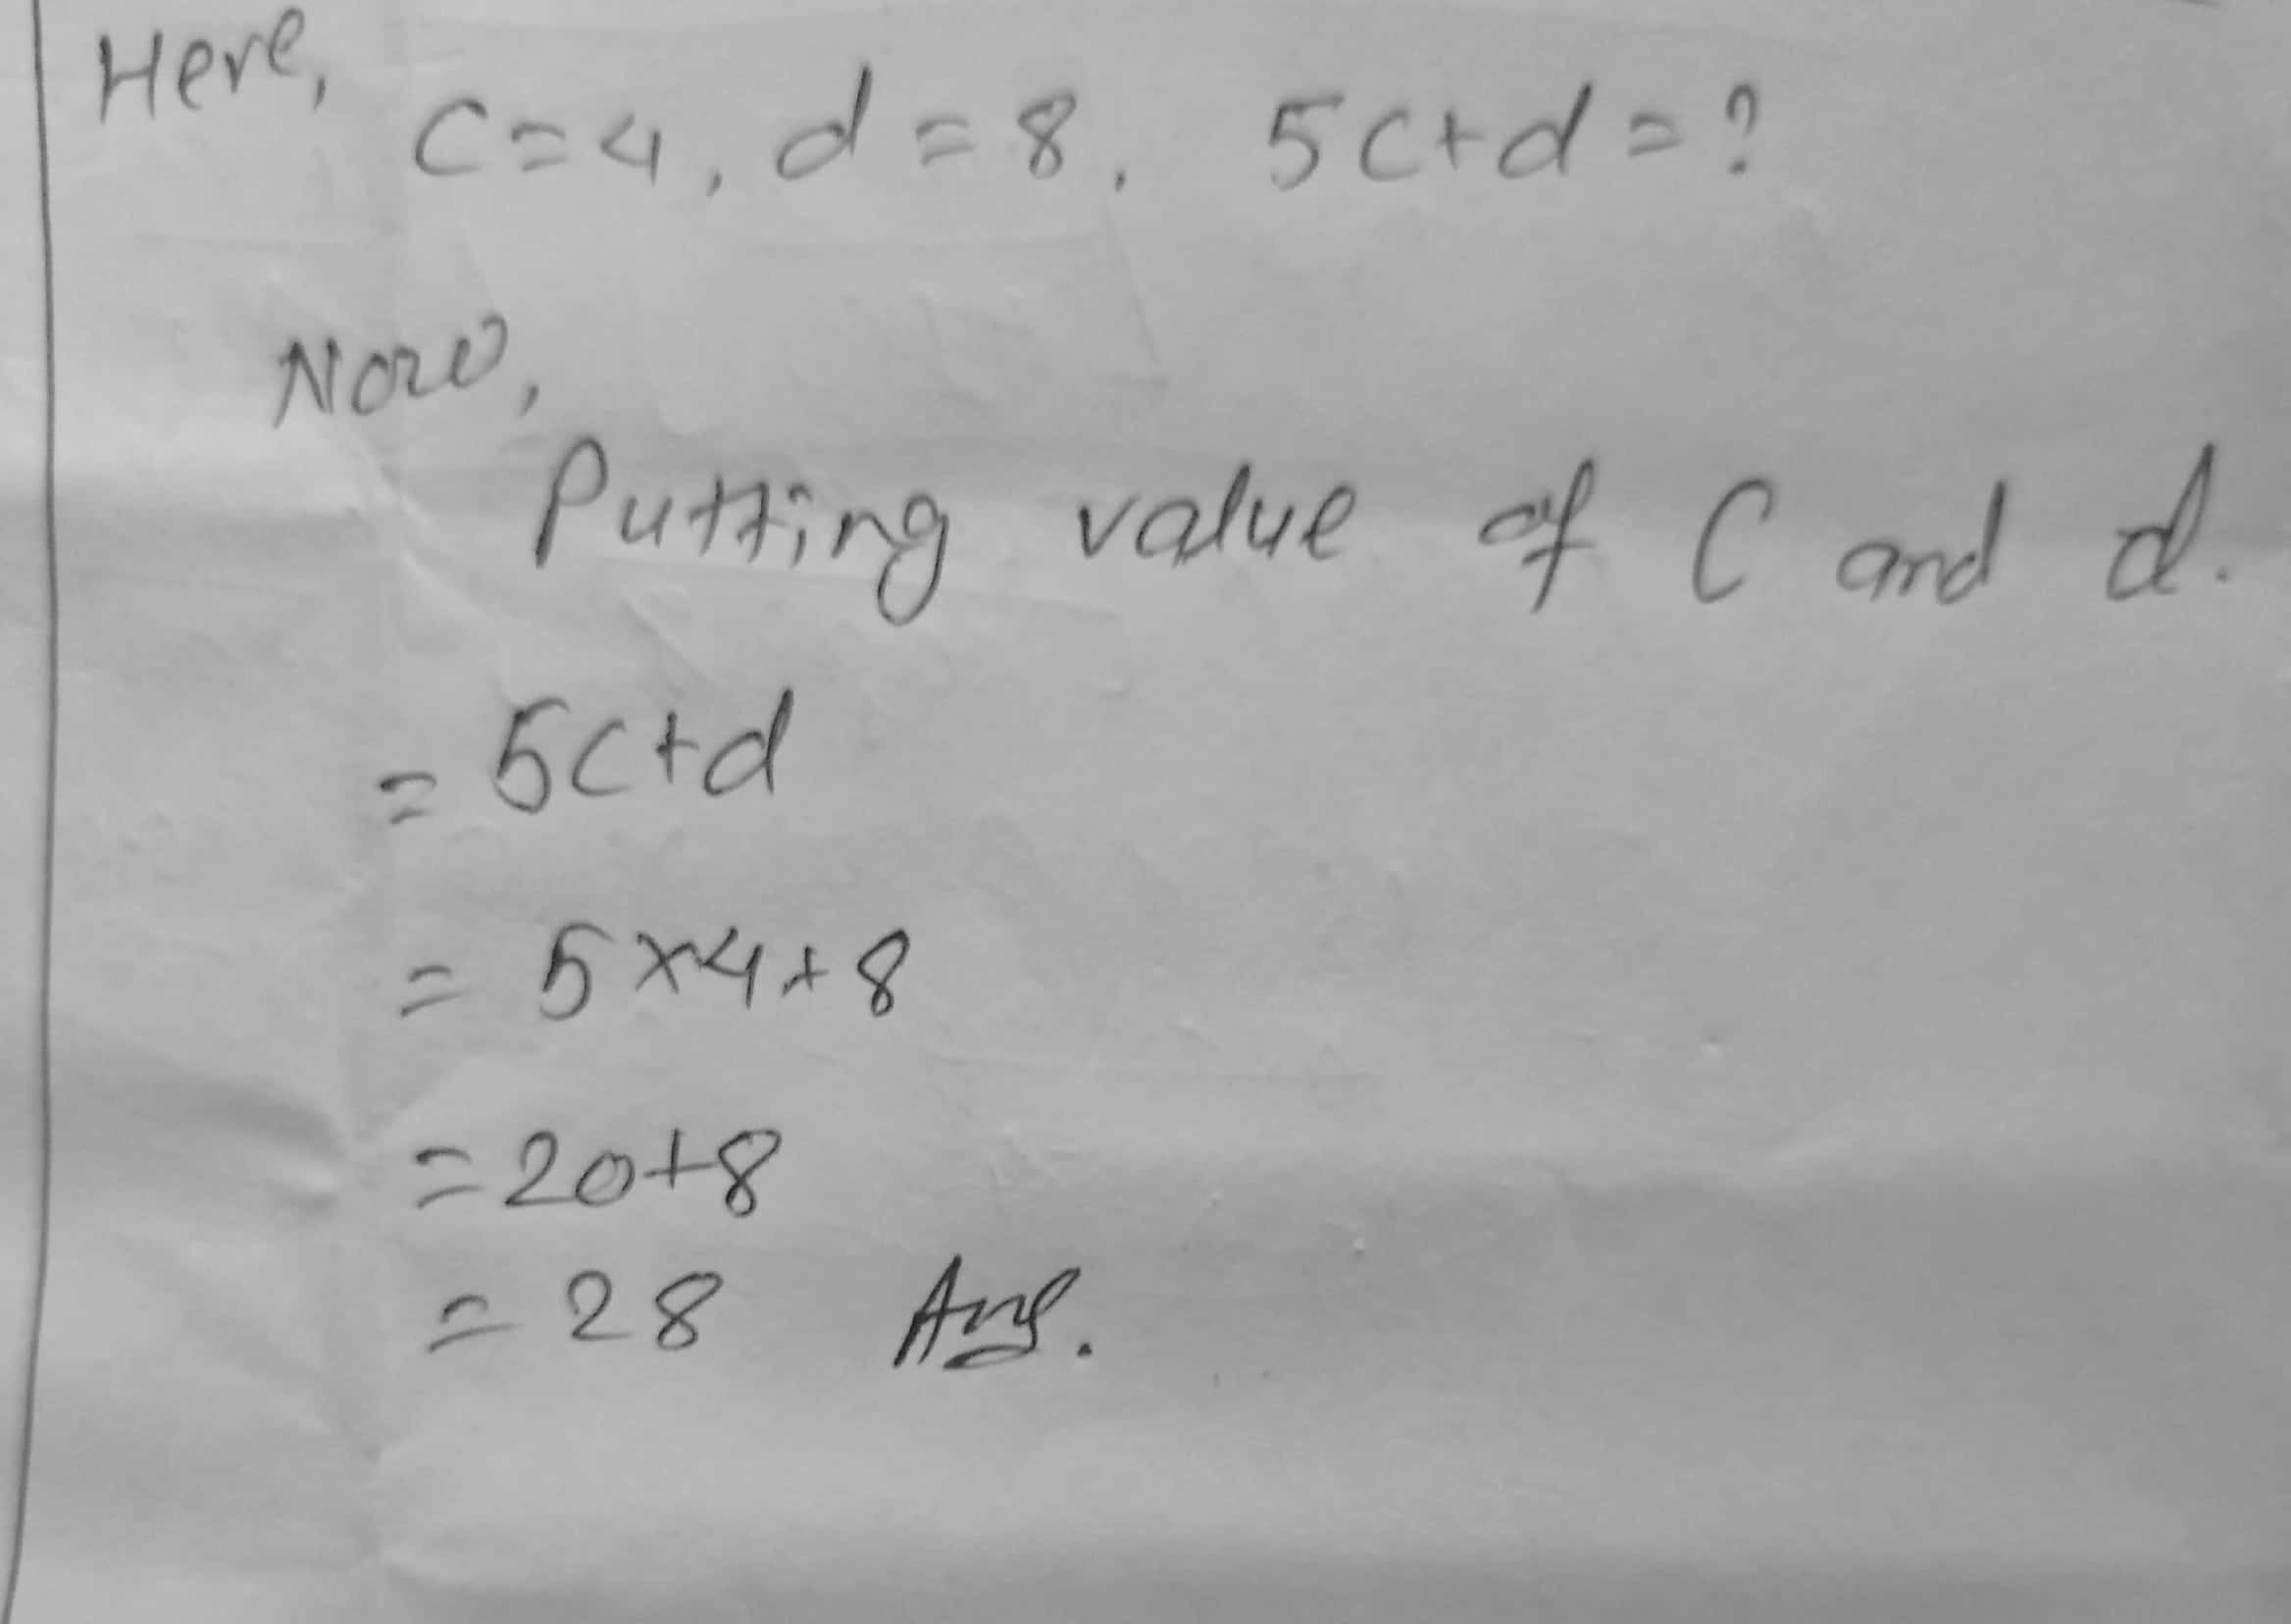 Here,
C=4, d=8, 5c+d=?
Now,
Putting value of C and d.
=5c+d
= 5×4+8
=20+8
= 28 Ans.